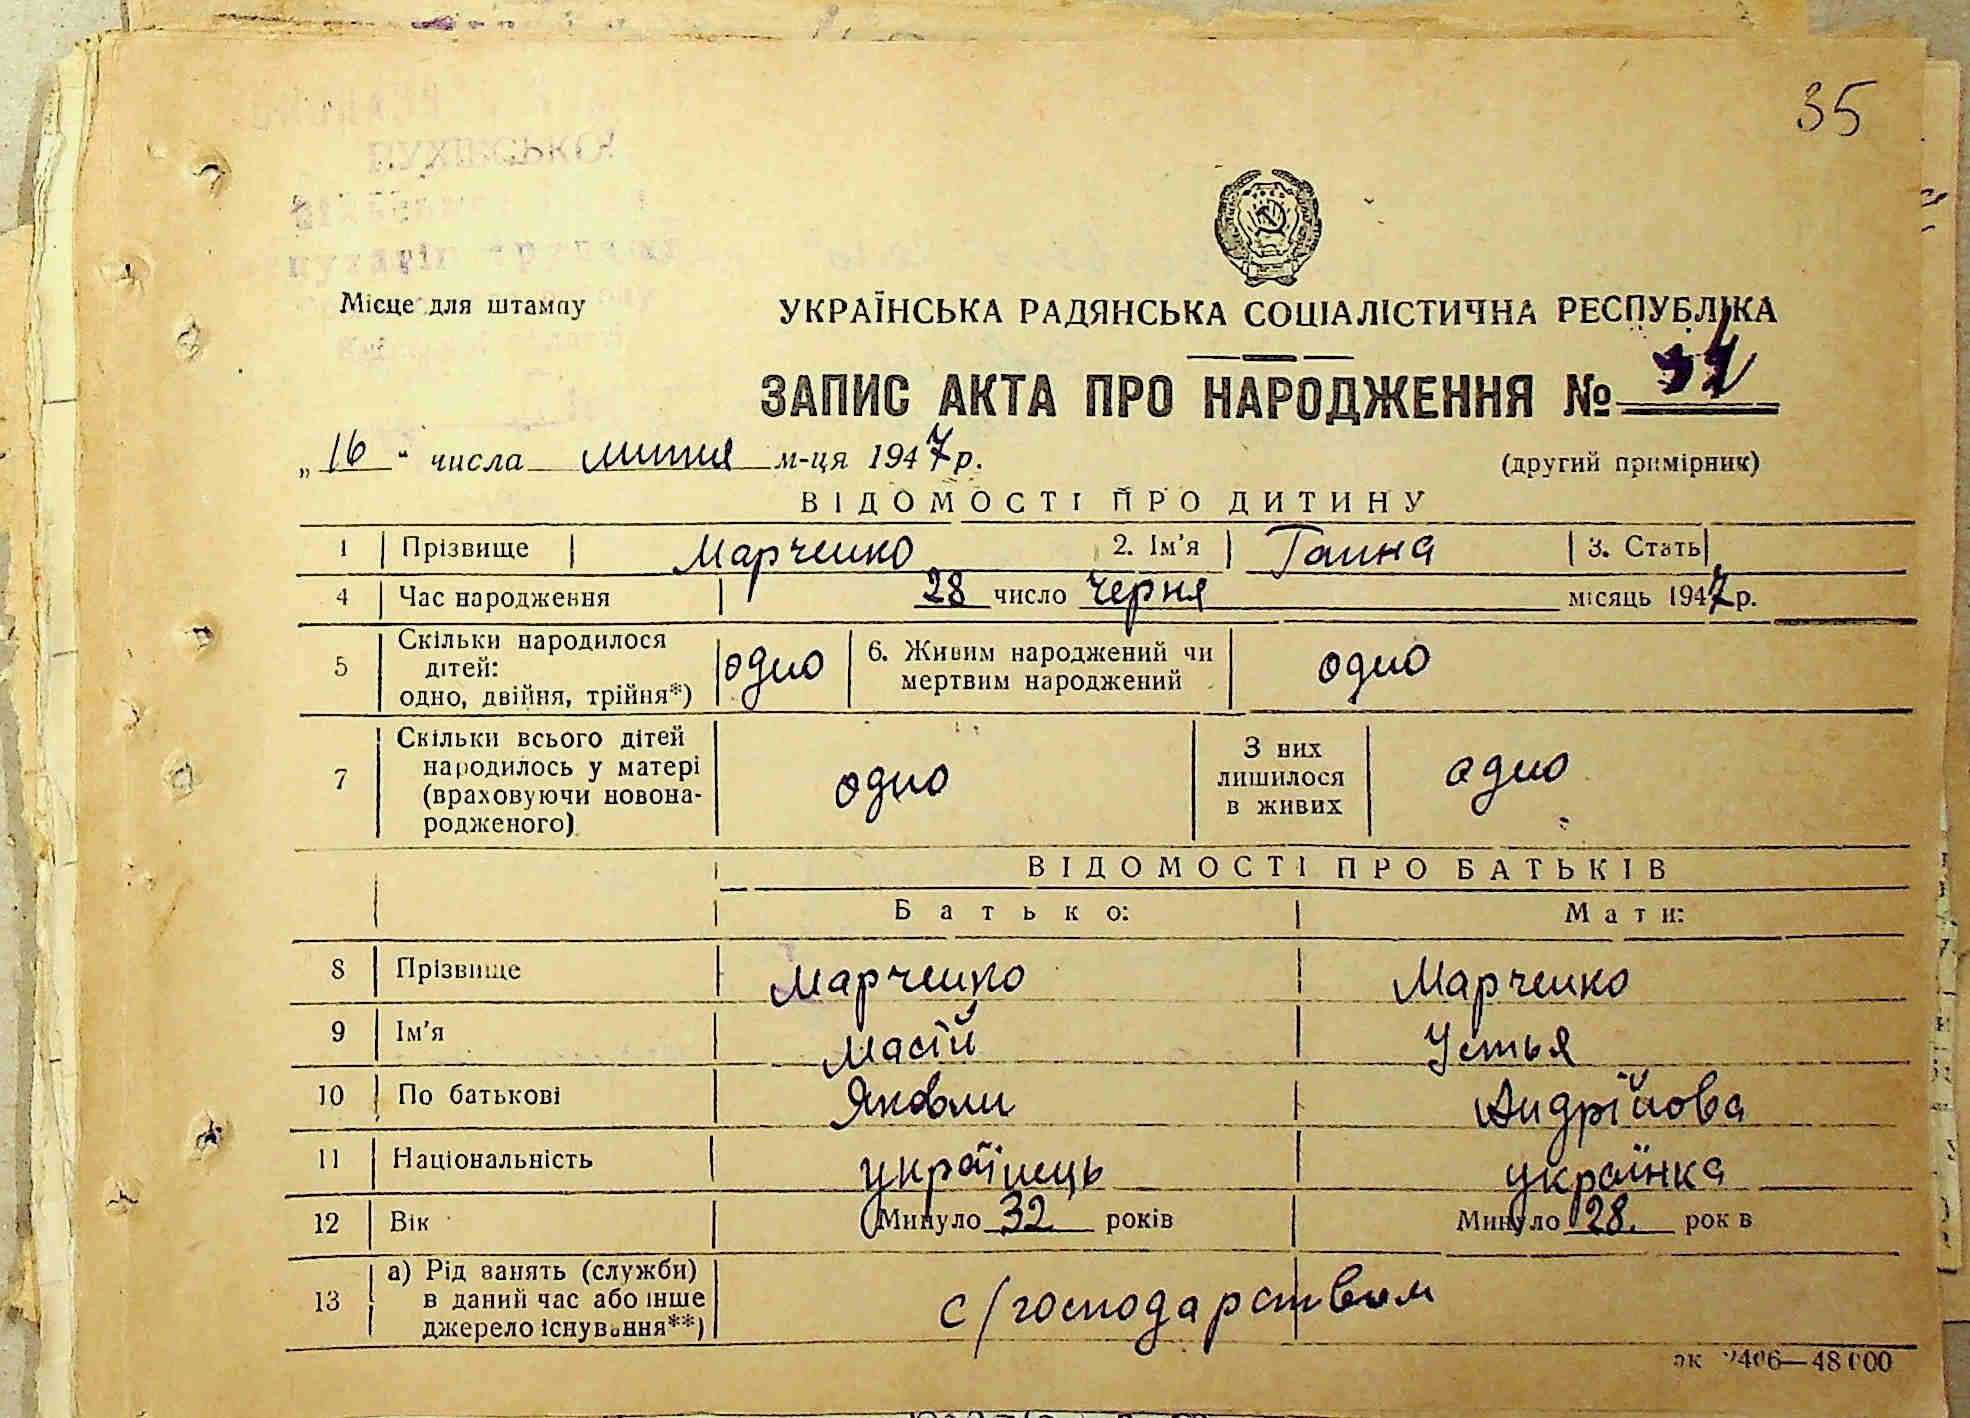 35
ПУХІВСЬКОЇ
Місце для штампу
УКРАЇНСЬКА РАДЯНСЬКА СОЦІАЛІСТИЧНА РЕСПУБЛІКА
ЗАПИС АКТА ПРО НАРОДЖЕННЯ №
„16“ числа липня м-ця 1947 р.
(другий примірник)
ВІДОМОСТІ ПРО ДИТИНУ
1 Прізвище Марченко 2. Ім'я Ганна 3. Стать
4 Час народження 28 число черня місяць 1947 р.
5 Скільки народилося дітей: одно, двійня, трійня*) одно 6. Живим народжений чи мертвим народжений одно
7 Скільки всього дітей народилось у матері (враховуючи новонародженого) одно З них лишилося в живих одно
ВІДОМОСТІ ПРО БАТЬКІВ
Батько: Мати:
8 Прізвище Марченко Марченко
9 Ім'я Масій Устья
10 По батькові Яковли Андрійова
11 Національність українець українка
12 Вік Минуло 32 років Минуло 28. рок в
13 а) Рід занять (служби) в даний час або інше джерело існування**) с/господарством
2406—48000